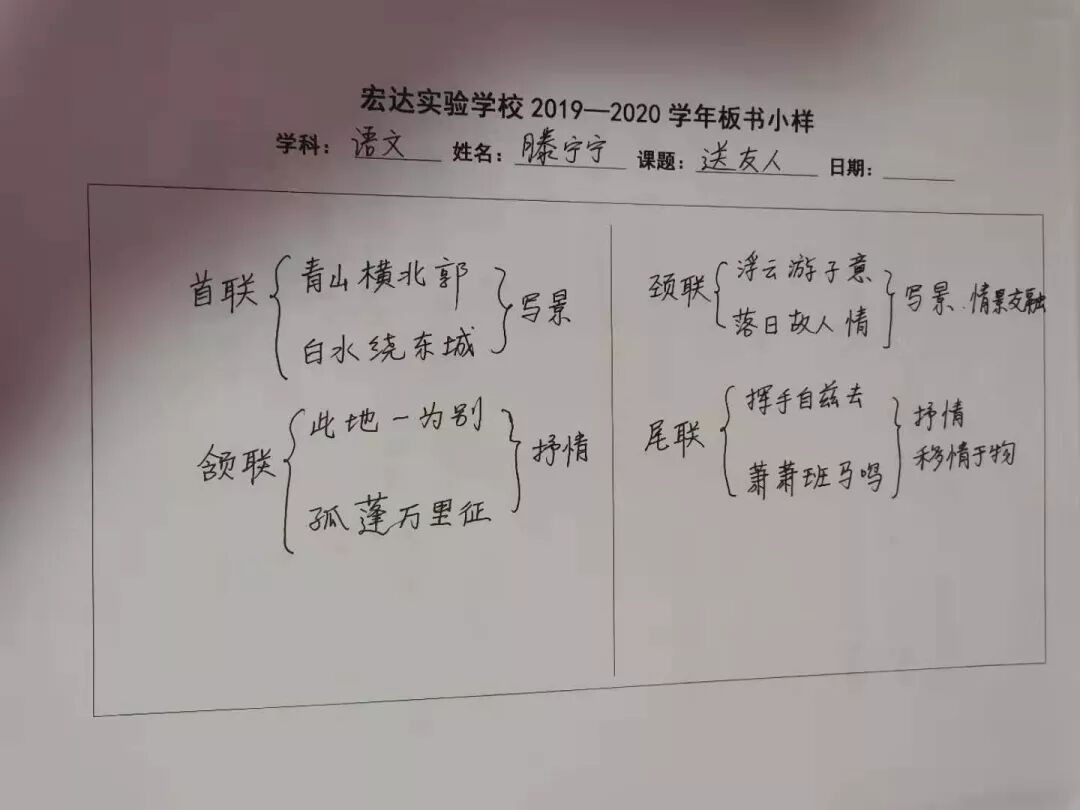 宏达实验学校2019—2020学年板书小样
学科：语文 姓名：滕宁宁 课题：送友人 日期：
首联 青山横北郭 白水绕东城 写景
颔联 此地一为别 孤蓬万里征 抒情
颈联 浮云游子意 落日故人情 写景.情景交融
尾联 挥手自兹去 萧萧班马鸣 抒情 移情于物